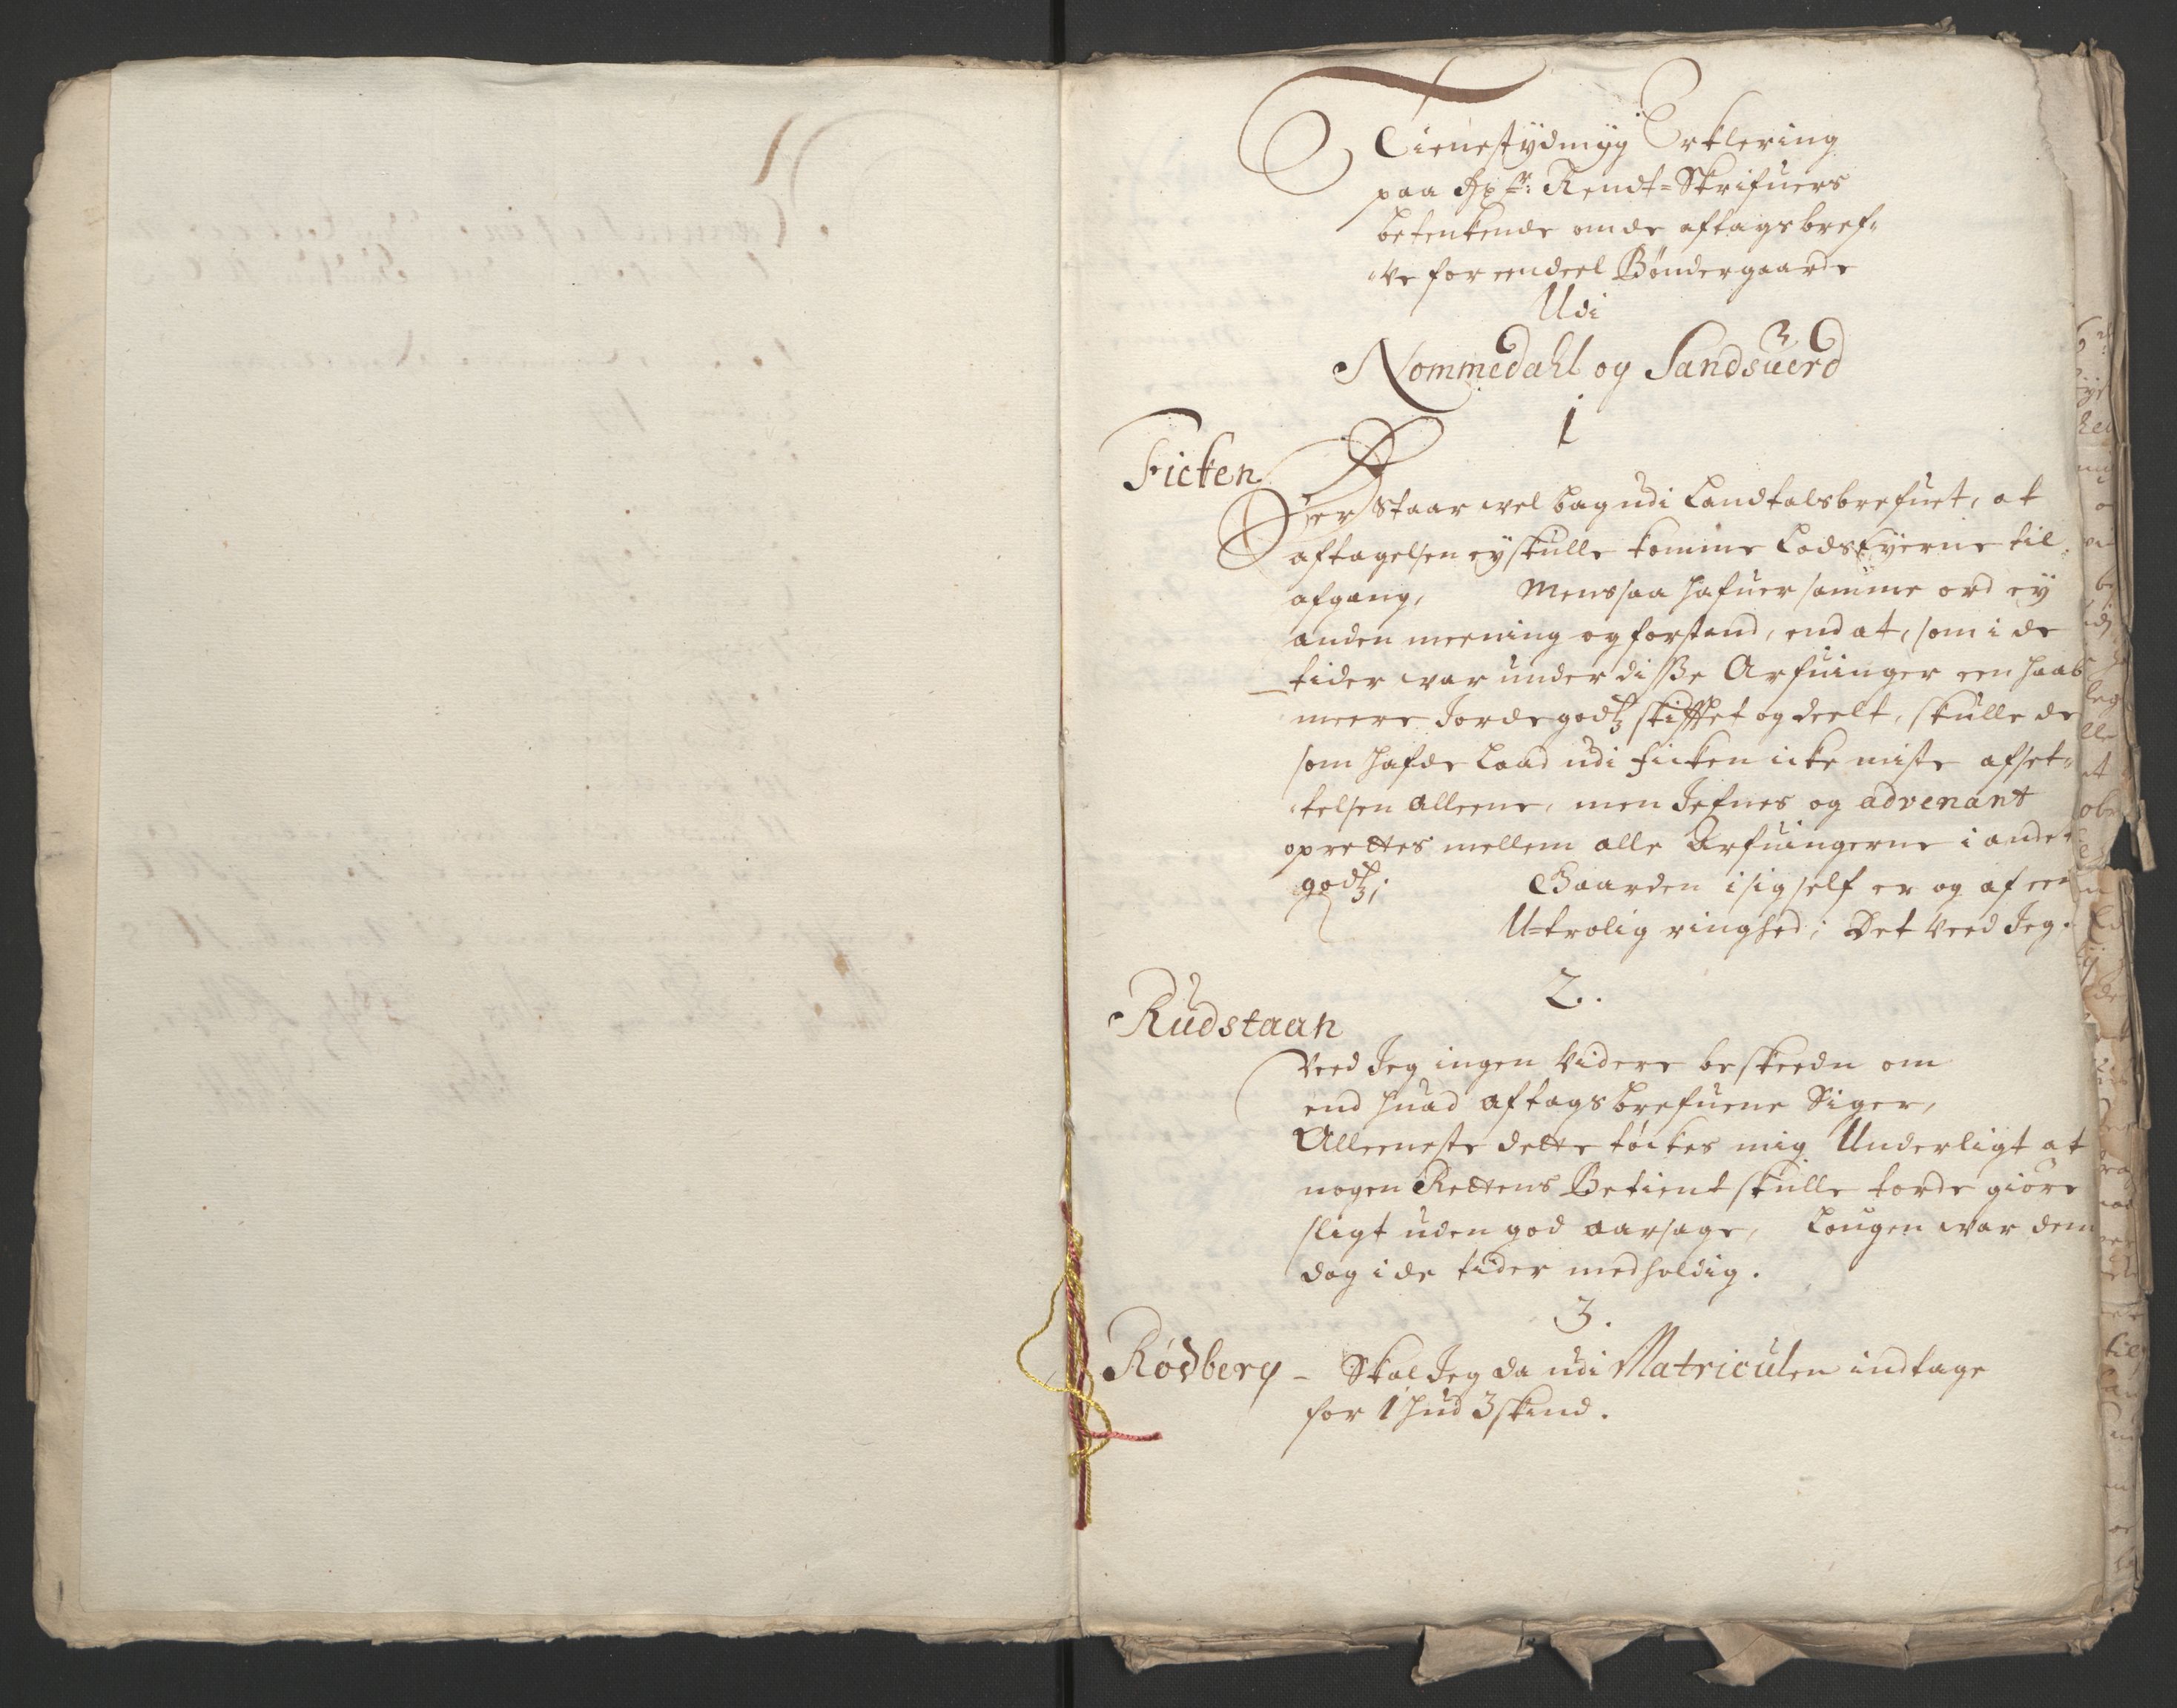 Tienestydmyg Erklering
paa Hr: Rendt-Skrifuers
betenkende om de aftagsbref-
ve for eendeel Bøndergaarde
Udi
Nommedahl og Sandsuerd
1
Ficken
Der staar wel bag udi Landtalsbrefuet, at
aftagelsen ey skulle komme Lods Eyerne til
afgang, Mens saa hafuer samme ord ey
anden meening og forstand, end at, som i de
tider war under disse Arfuinger een haab
meere Jordegodtz skifftet og deelt, skulle de
som hafde Laad udi Ficken icke miste afset-
telsen alleene, men Jefnes og advenant
oprettes mellem alle Arfuingerne i andet
godtz; Gaarden i sig self er og af een
U-trolig ringhed; Det veed Jeg.
2.
Rudstaan
Veed Jeg ingen videre beskeedn om
end huad aftagsbrefuene Siger,
Alleeneste dette tøckes mig Underligt at
nogen Rettens Betient skulle torde giøre
sligt uden god aarsage, Lougen war dem
dog i de tider medholdig.
3.
Rødberg - Skal Jeg da udi Matriculen indtage
for 1 hud 3 skind.